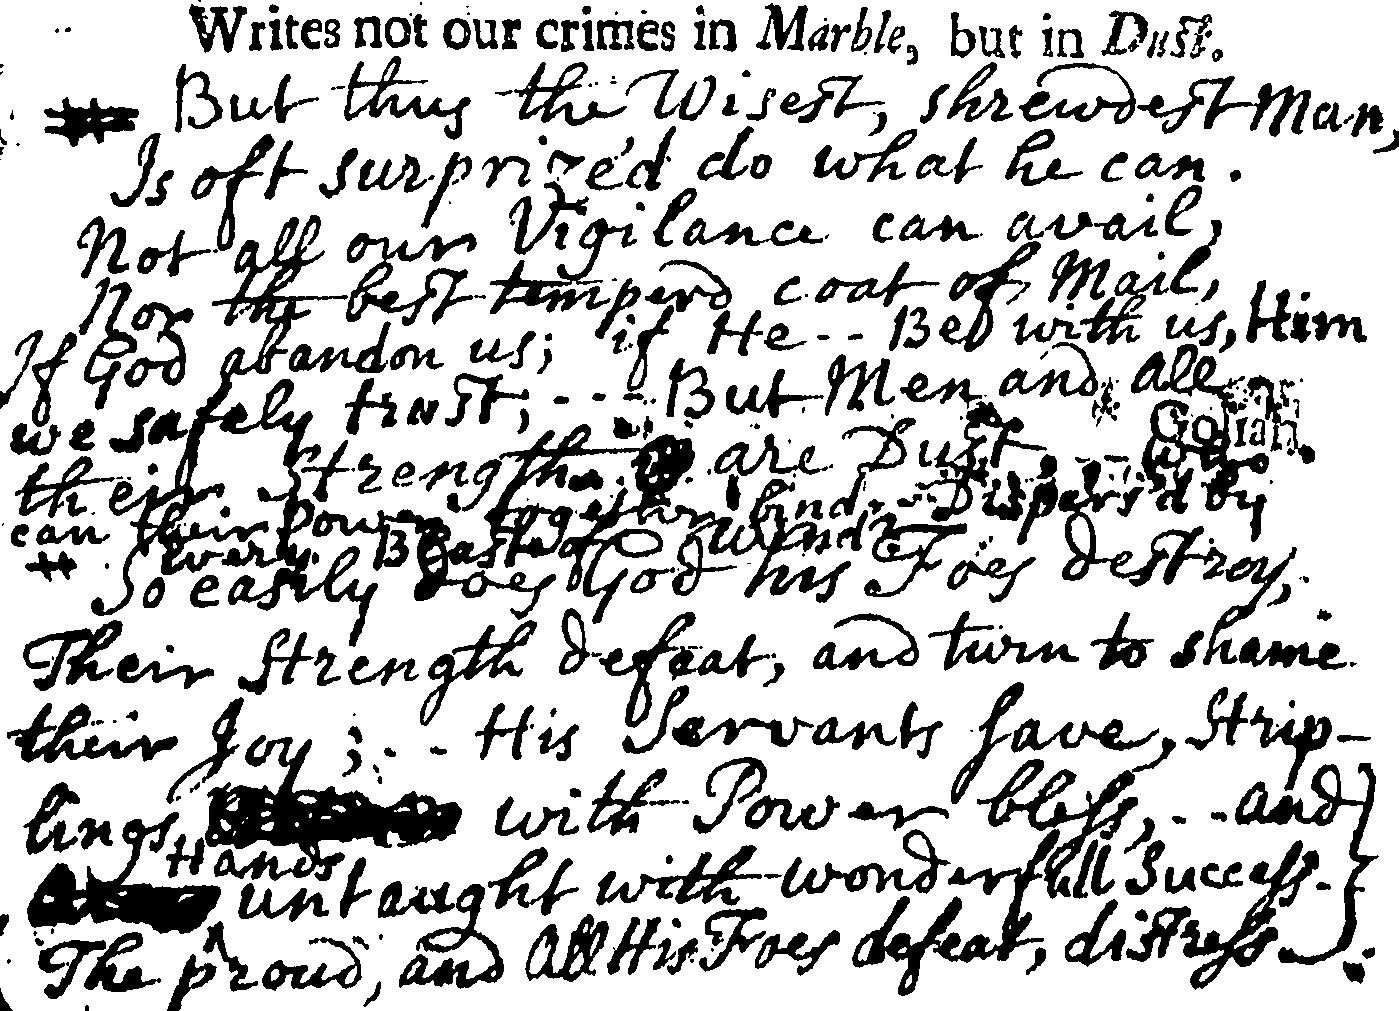 Writes not our crimes in Marble, but in Dust.
But thus the Wisest, shrewdest Man,
Is oft surprize'd do what he can.
Not all our Vigilance can avail,
Nor the best temperd coat of Mail,
If God abandon us; if He -- Be with us, Him
we safely trust; --- But Men and all
Goliah.
their Strength are Dust, -- who
can their Power together bind -- Dispers'd by
every Blast of Wind?
So easily does God his Foes destroy,
Their Strength defeat, and turn to shame
their Joy; -- His Servants save, Strip-
lings with Power bless, -- and
Hands
untaught with wonderfull Success.
The proud, and All His Foes defeat, distress.